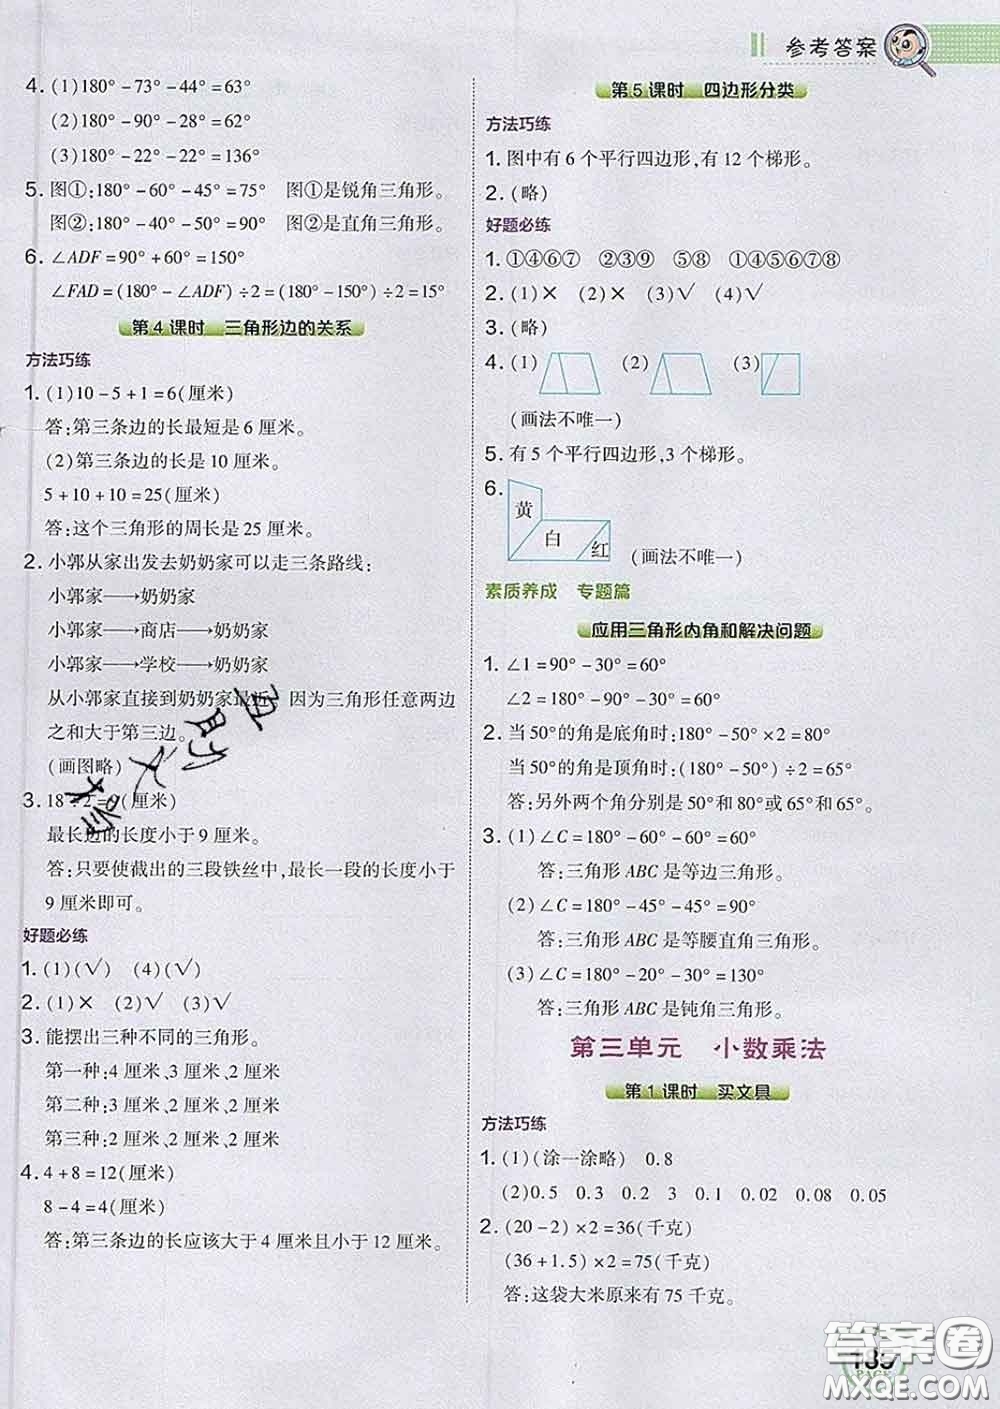 参考答案
4. (1)180° - 73° - 44° = 63°
(2)180° - 90° - 28° = 62°
(3)180° - 22° - 22° = 136°
5. 图①:180° - 60° - 45° = 75° 图①是锐角三角形。
图②:180° - 40° - 50° = 90° 图②是直角三角形。
6. ∠ADF = 90° + 60° = 150°
∠FAD = (180° - ∠ADF) ÷ 2 = (180° - 150°) ÷ 2 = 15°
第 4 课时 三角形边的关系
方法巧练
1. (1)10 - 5 + 1 = 6(厘米)
答:第三条边的长最短是 6 厘米。
(2)第三条边的长是 10 厘米。
5 + 10 + 10 = 25(厘米)
答:这个三角形的周长是 25 厘米。
2. 小郭从家出发去奶奶家可以走三条路线:
小郭家⟶奶奶家
小郭家⟶商店⟶奶奶家
小郭家⟶学校⟶奶奶家
从小郭家直接到奶奶家最近 因为三角形任意两边
之和大于第三边。
(画图略)
3. 18 ÷ 2 = (厘米)
最长边的长度小于 9 厘米。
答:只要使截出的三段铁丝中,最长一段的长度小于
9 厘米即可。
好题必练
1. (1)(√) (4)(√)
2. (1)× (2)√ (3)√
3. 能摆出三种不同的三角形。
第一种:4 厘米、3 厘米、2 厘米
第二种:3 厘米、2 厘米、2 厘米
第三种:2 厘米、2 厘米、2 厘米
4. 4 + 8 = 12(厘米)
8 - 4 = 4(厘米)
答:第三条边的长应该大于 4 厘米且小于 12 厘米。
第 5 课时 四边形分类
方法巧练
1. 图中有 6 个平行四边形,有 12 个梯形。
2. (略)
好题必练
1. ①④⑥⑦ ②③⑨ ⑤⑧ ①④⑤⑥⑦⑧
2. (1)× (2)× (3)√ (4)√
3. (略)
4. (1) (2) (3)
(画法不唯一)
5. 有 5 个平行四边形,3 个梯形。
6. 黄 白 红 (画法不唯一)
素质养成 专题篇
应用三角形内角和解决问题
1. ∠1 = 90° - 30° = 60°
∠2 = 180° - 90° - 30° = 60°
2. 当 50°的角是底角时:180° - 50° × 2 = 80°
当 50°的角是顶角时:(180° - 50°) ÷ 2 = 65°
答:另外两个角分别是 50°和 80°或 65°和 65°。
3. (1)∠C = 180° - 60° - 60° = 60°
答:三角形 ABC 是等边三角形。
(2)∠C = 180° - 45° - 45° = 90°
答:三角形 ABC 是等腰直角三角形。
(3)∠C = 180° - 20° - 30° = 130°
答:三角形 ABC 是钝角三角形。
第三单元 小数乘法
第 1 课时 买文具
方法巧练
1. (1)(涂一涂略) 0.8
(2)0.5 0.3 0.2 3 0.1 0.02 0.08 0.05
2. (20 - 2) × 2 = 36(千克)
(36 + 1.5) × 2 = 75(千克)
答:这袋大米原来有 75 千克。
答案圈
MXQE.COM
PAGE